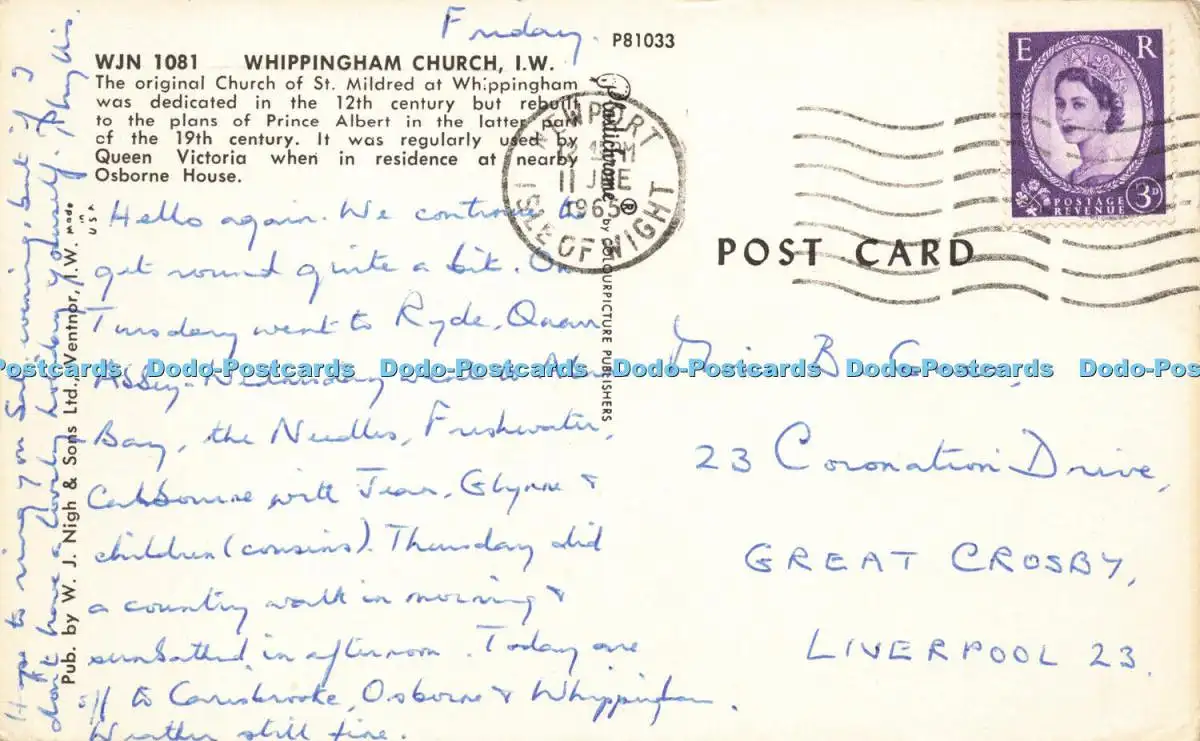 Friday.
P81033
WJN 1081 WHIPPINGHAM CHURCH, I.W.
The original Church of St. Mildred at Whippingham
was dedicated in the 12th century but rebuilt
to the plans of Prince Albert in the latter part
of the 19th century. It was regularly used by
Queen Victoria when in residence at nearby
Osborne House.
Hello again. We continue to
get round quite a bit. On
Tuesday went to Ryde, Quarr
Abbey. Wednesday went to Alum
Bay, the Needles, Freshwater,
Calbourne with Jean, Glynne &
children (cousins). Thursday did
a country walk in morning &
sunbathed in afternoon. Today are
off to Carisbrooke, Osborne & Whippingham.
Weather still fine.
Hope to ring you Sat. evening, but if I
don't have a lovely holiday yourself. Phyllis.
Pub. by W. J. Nigh & Sons Ltd., Ventnor, I.W.
Made in USA
Plastichrome® by COLOURPICTURE PUBLISHERS
NEWPORT
PM
11 JNE
1965
ISLE OF WIGHT
E R
POSTAGE
REVENUE
3D
POST CARD
Miss B
23 Coronation Drive,
GREAT CROSBY,
LIVERPOOL 23.
Dodo-Postcards Dodo-Postcards Dodo-Postcards Dodo-Postcards Dodo-Postcards